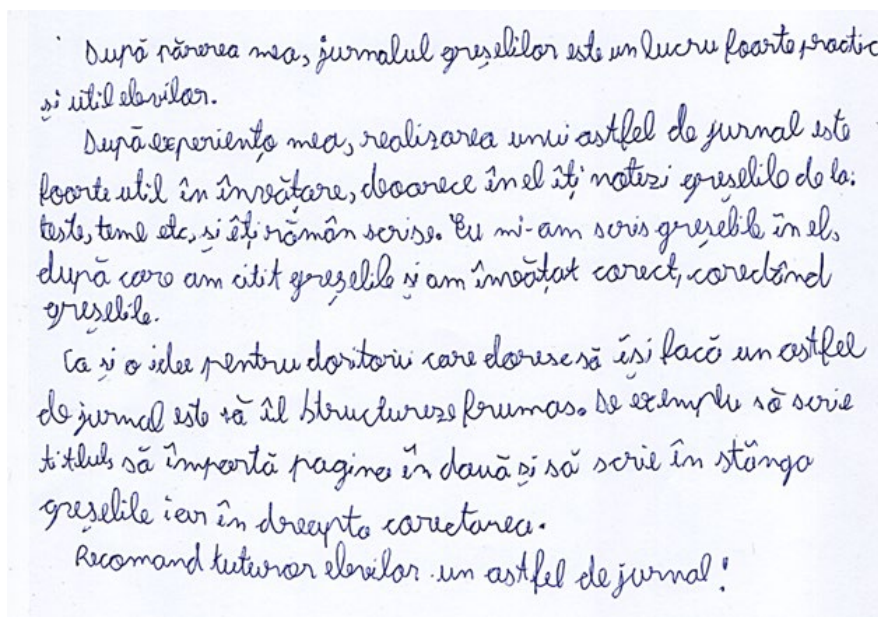 După părerea mea, jurnalul greșelilor este un lucru foarte practic
și util elevilor.
După experiența mea, realizarea unui astfel de jurnal este
foarte util în învățare, deoarece în el îți notezi greșelile de la:
teste, teme etc, și îți rămân scrise. Eu mi-am scris greșelile în el,
după care am citit greșelile și am învățat corect, corectând
greșelile.
Ca și o idee pentru doritorii care doresc să își facă un astfel
de jurnal este să îl structureze frumos. De exemplu să scrie
titlul, să împartă pagina în două și să scrie în stânga
greșelile iar în dreapta corectarea.
Recomand tuturor elevilor un astfel de jurnal!